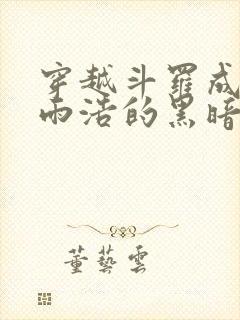 穿越斗羅成
雨浩的黑暗
董藝雲